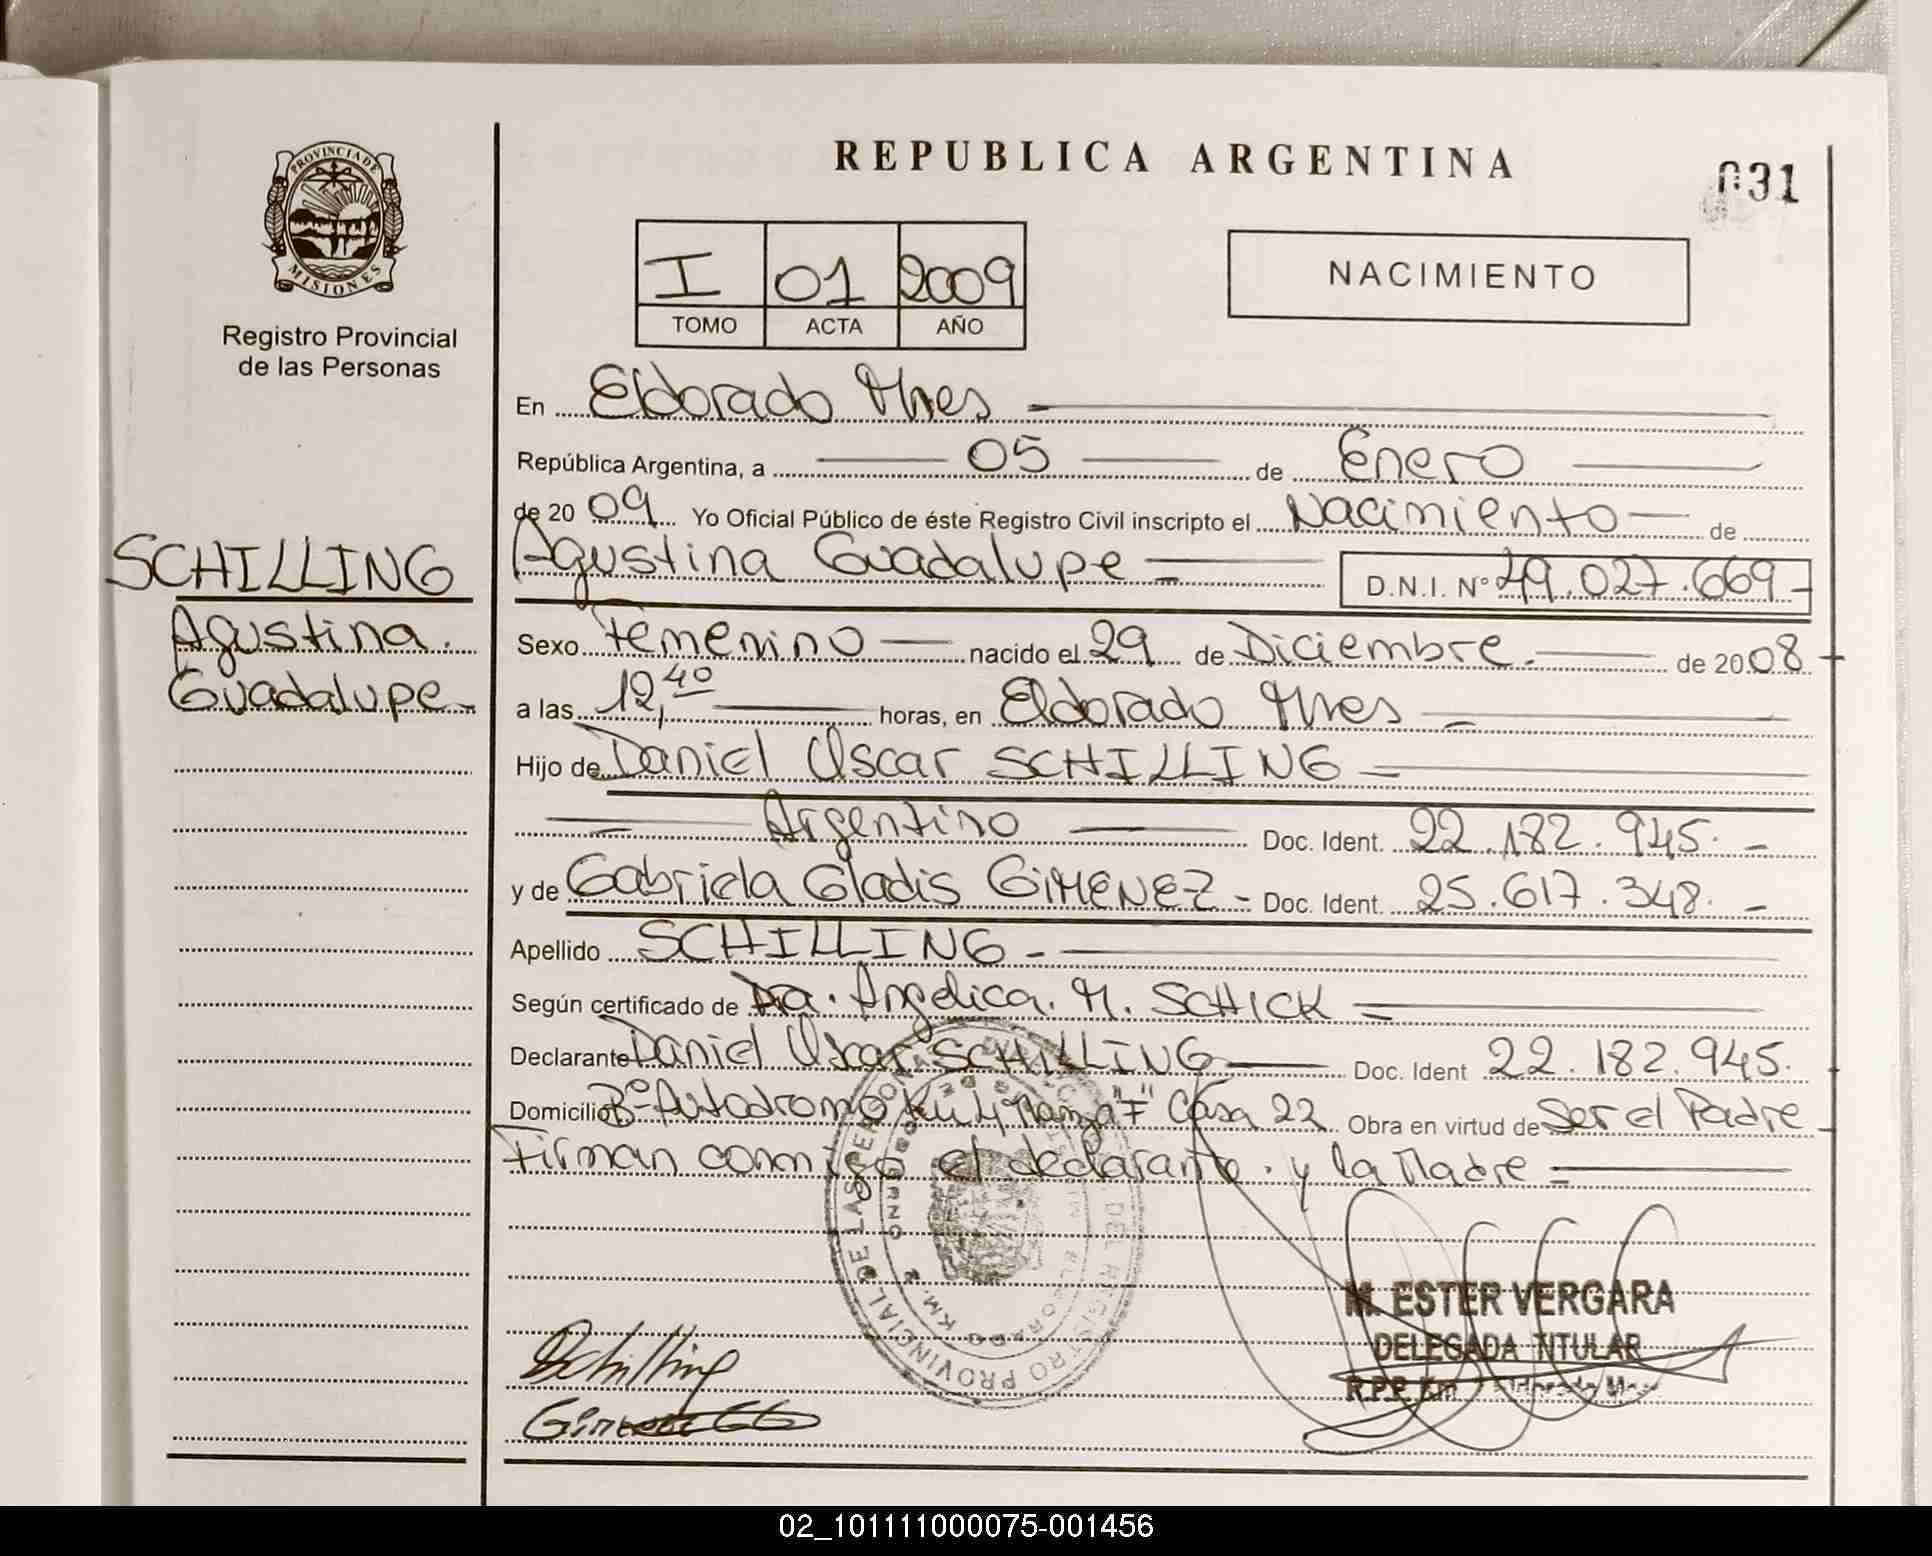 REPUBLICA ARGENTINA
031
PROVINCIA DE MISIONES
Registro Provincial
de las Personas
I 01 2009
TOMO ACTA AÑO
NACIMIENTO
SCHILLING
Agustina.
Guadalupe
En Eldorado Mnes
República Argentina, a 05 de Enero
de 2009 Yo Oficial Público de éste Registro Civil inscripto el Nacimiento de
Agustina Guadalupe D.N.I. Nº 49.027.669
Sexo Femenino nacido el 29 de Diciembre. de 2008.
a las 12,40 horas, en Eldorado Mnes
Hijo de Daniel Oscar SCHILLING
Argentino Doc. Ident. 22.182.945.
y de Gabriela Gladis GIMENEZ Doc. Ident. 25.617.348.
Apellido SCHILLING
Según certificado de Dra. Angelica. M. SCHICK
Declarante Daniel Oscar SCHILLING Doc. Ident 22.182.945.
Domicilio Bº Autodromo Km 4 Manza "F" Casa 22 Obra en virtud de Ser el Padre
Firman conmigo el declarante. y la Madre
REGISTRO PROVINCIAL DE LAS PERSONAS
ELDORADO KM. 2
M. ESTER VERGARA
DELEGADA TITULAR
R.P.P. Km
Schilling
02_101111000075-001456